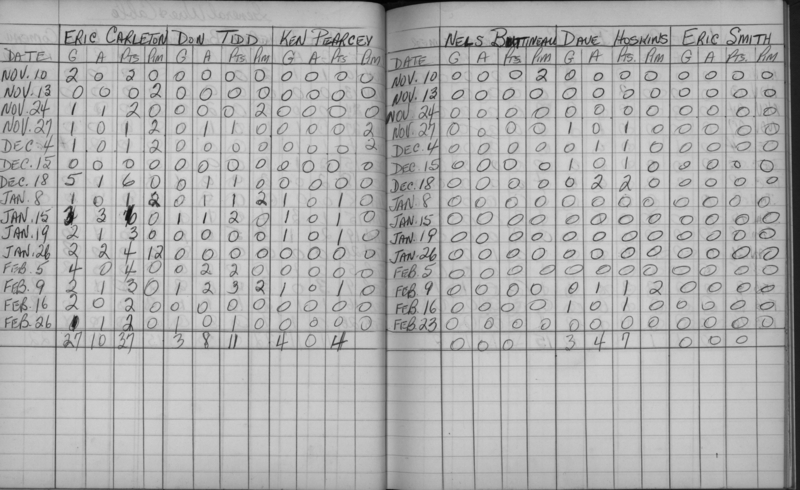 ERIC CARLETON DON TIDD KEN PEARCEY
DATE G A Pts Pim G A Pts. Pim G A Pts. Pim
NOV. 10 2 0 2 0 0 0 0 0 0 0 0 0
NOV. 13 0 0 0 2 0 0 0 0 0 0 0 0
NOV. 24 1 1 2 0 0 0 0 2 0 0 0 0
NOV. 27 1 0 1 2 0 1 1 0 0 0 0 2
DEC 4 1 0 1 2 0 0 0 0 0 0 0 2
DEC. 15 0 0 0 0 0 0 0 0 0 0 0 0
DEC. 18 5 1 6 0 0 1 1 0 0 0 0 0
JAN. 8 1 0 1 2 0 1 1 2 1 0 1 0
JAN. 15 3 0 1 1 2 0 1 0 1 0
JAN. 19 2 1 3 0 0 0 0 0 1 0 1 0
JAN. 26 2 2 4 12 0 0 0 0 0 0 0 0
FEB. 5 4 0 4 0 0 2 2 0 0 0 0 0
FEB. 9 2 1 3 0 1 2 3 2 1 0 1 0
FEB. 16 2 0 2 0 0 0 0 0 0 0 0 0
FEB. 26 1 2 0 1 0 1 0 0 0 0 0
27 10 37 3 8 11 4 0 4
NELS BOTTINEAU DAVE HOSKINS ERIC SMITH
DATE G A Pts. Pim G A Pts. Pim G A Pts. Pim
NOV. 10 0 0 0 2 0 0 0 0 0 0 0 0
NOV. 13 0 0 0 0 0 0 0 0 0 0 0 0
NOV 24 0 0 0 0 0 0 0 0 0 0 0 0
NOV. 27 0 0 0 0 1 0 1 0 0 0 0 0
DEC. 4 0 0 0 0 0 1 1 0 0 0 0 0
DEC 15 0 0 0 0 1 0 1 0 0 0 0 0
DEC. 18 0 0 0 0 0 2 2 0 0 0 0 0
JAN 8 0 0 0 0 0 0 0 0 0 0 0 0
JAN. 15 0 0 0 0 0 0 0 0 0 0 0 0
JAN. 19 0 0 0 0 0 0 0 0 0 0 0 0
JAN. 26 0 0 0 0 0 0 0 0 0 0 0 0
FEB. 5 0 0 0 0 0 0 0 0 0 0 0 0
FEB. 9 0 0 0 0 0 1 1 2 0 0 0 0
FEB. 16 0 0 0 0 1 0 1 0 0 0 0 0
FEB. 23 0 0 0 0 0 0 0 0 0 0 0 0
0 0 0 3 4 7 0 0 0